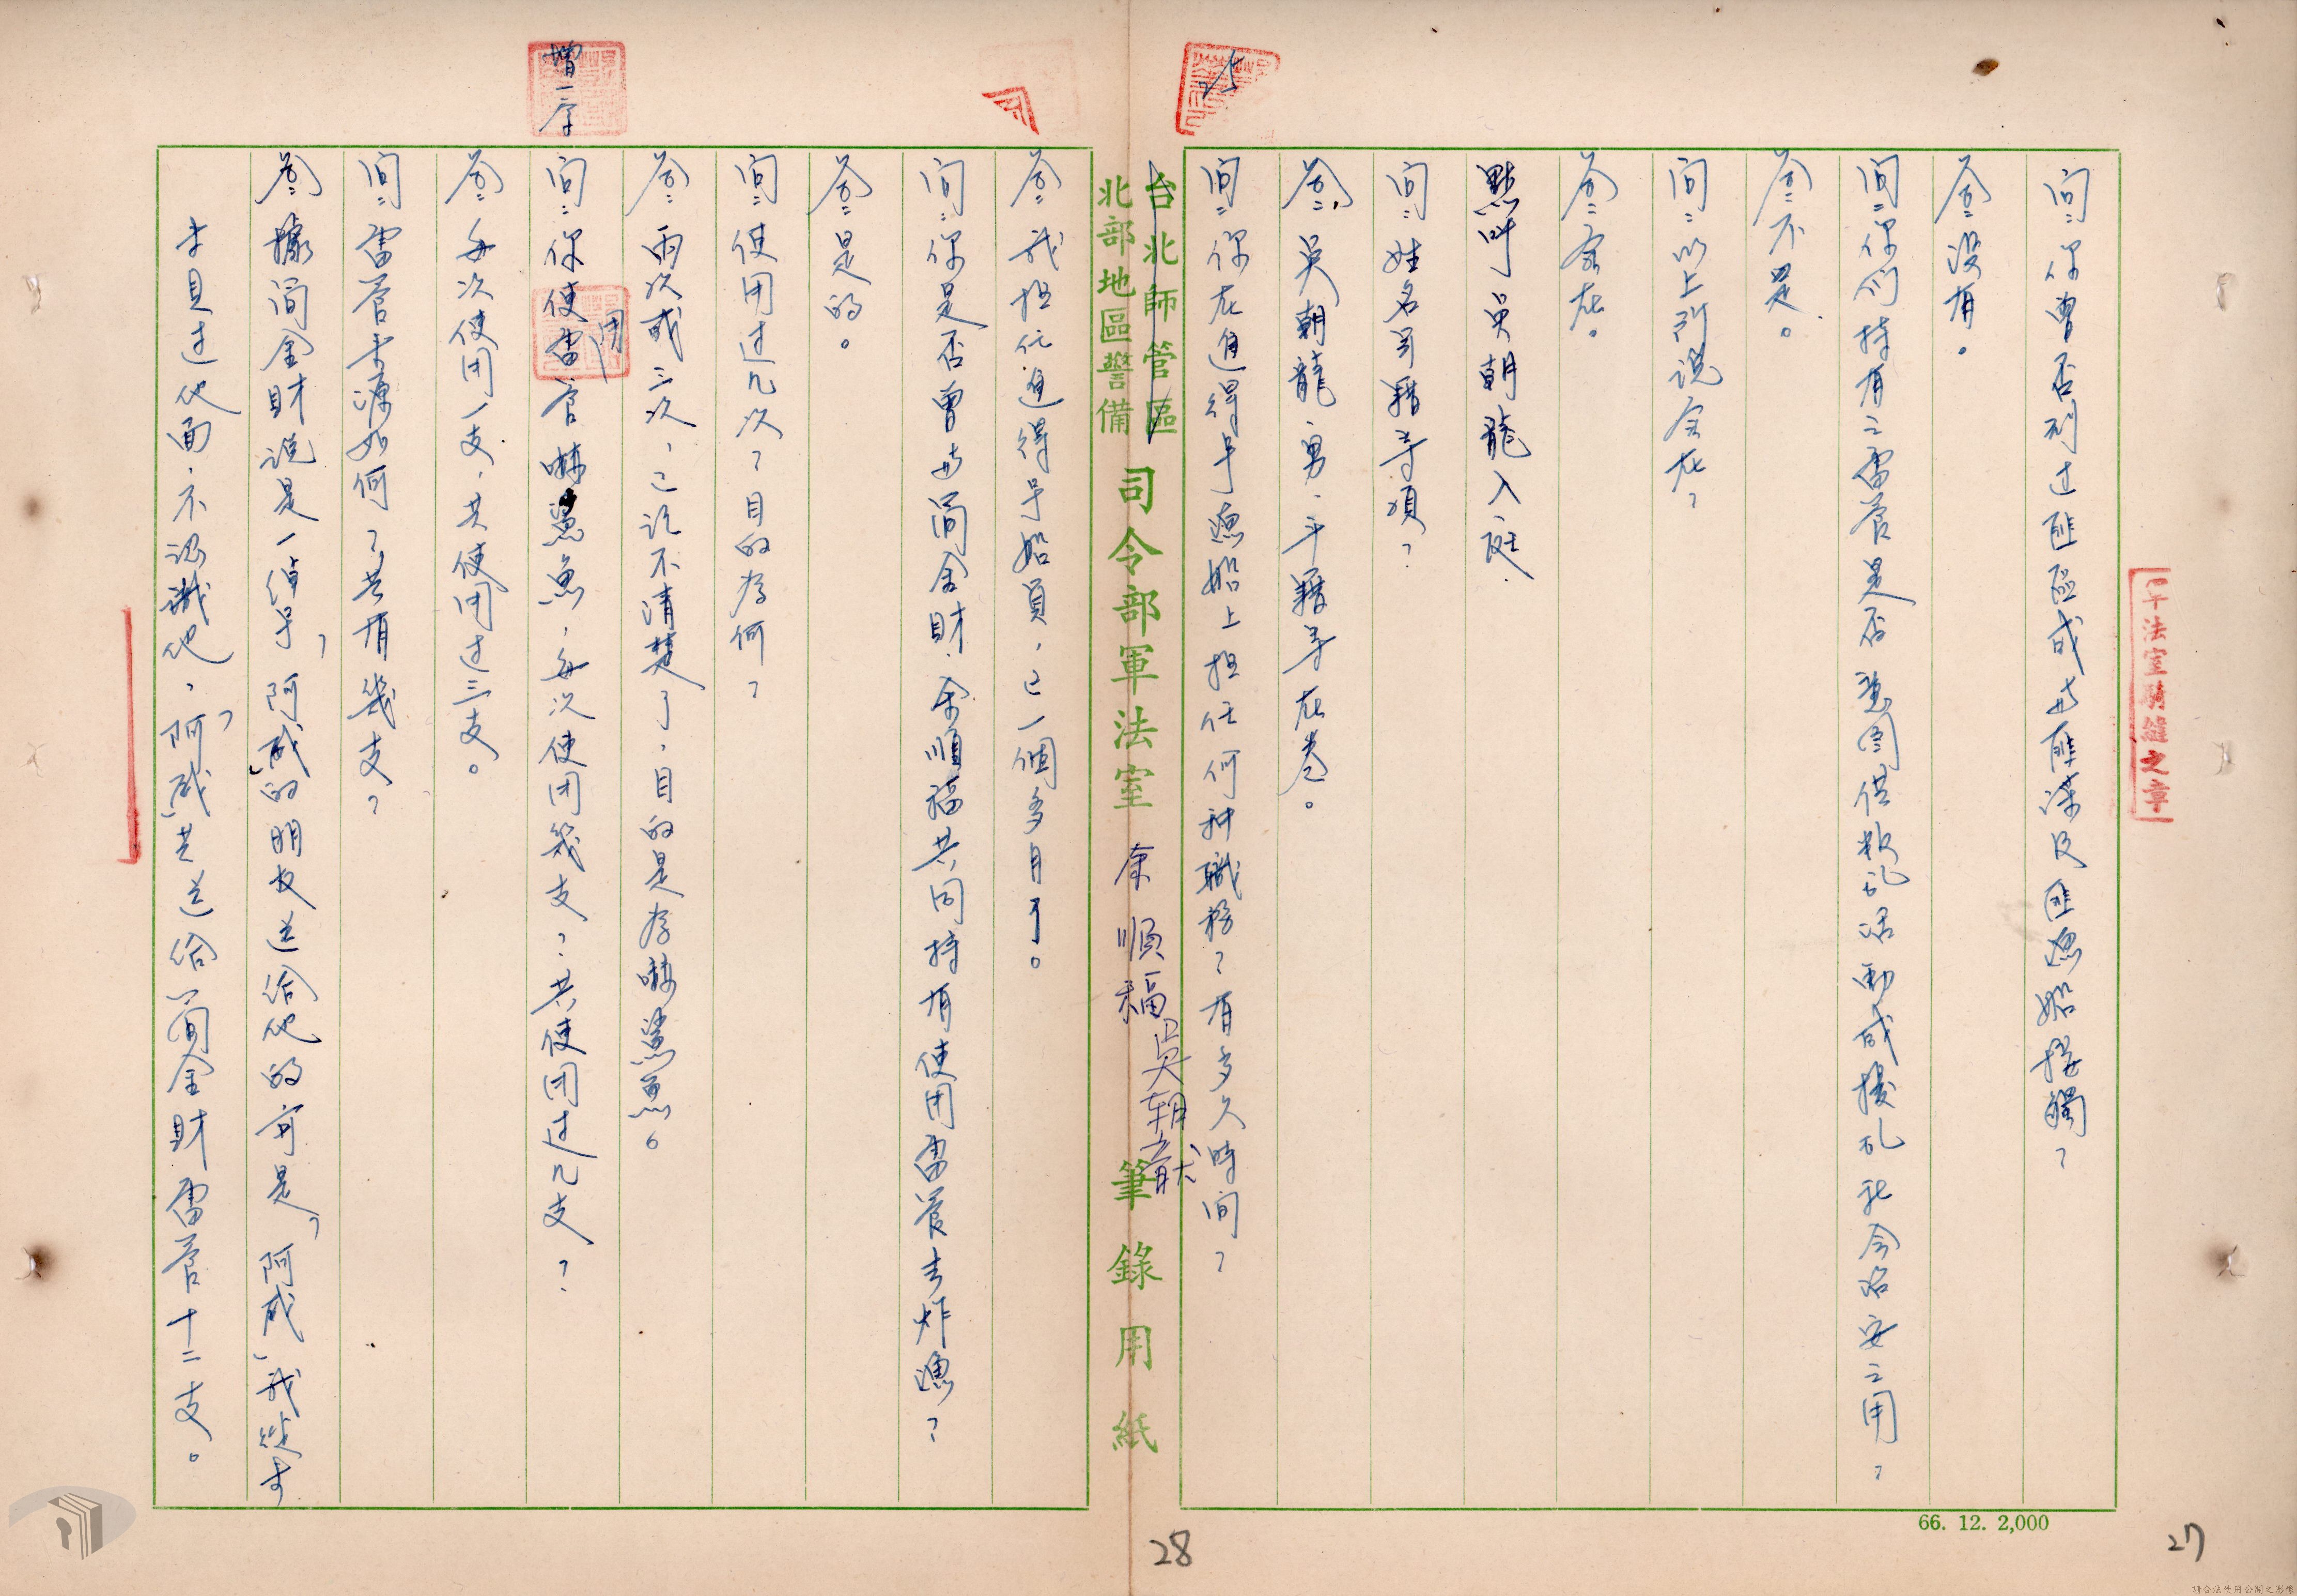 問：你曾否到过匪區或與匪諜及匪漁船接觸？
答：沒有。
問：你们持有之雷管是否意图供叛乱活動或擾乱社会治安之用？
答：不是。
問：以上所說实在？
答：实在。
點呼吳朝龍入庭
問：姓名年籍等項？
答：吳朝龍、男、年籍等在卷。
問：你在進得手漁船上担任何种職務？有多久時间？
台北師管區
北部地區警備
司令部軍法室 余順福 吳朝龍 筆錄用紙
答：我担任進得手船員，已一個多月了。
問：你是否曾與简金財、余順福共同持有使用雷管去炸漁？
答：是的。
問：使用过几次？目的為何？
答：兩次或三次，已記不清楚了，目的是為嚇鯊魚。
問：你使用雷官嚇鯊魚，每次使用幾支？共使用过几支？
增一字
答：每次使用一支，共使用过三支。
問：雷管來源如何？共有幾支？
答：據简金財说是一绰号「阿成」的朋友送给他的，可是「阿成」我從未
才見过他面，不認識他，「阿成」共送给简金財雷管十二支。
軍法室騎縫之章
66. 12. 2,000
27
28
25
請合法使用公開之影像